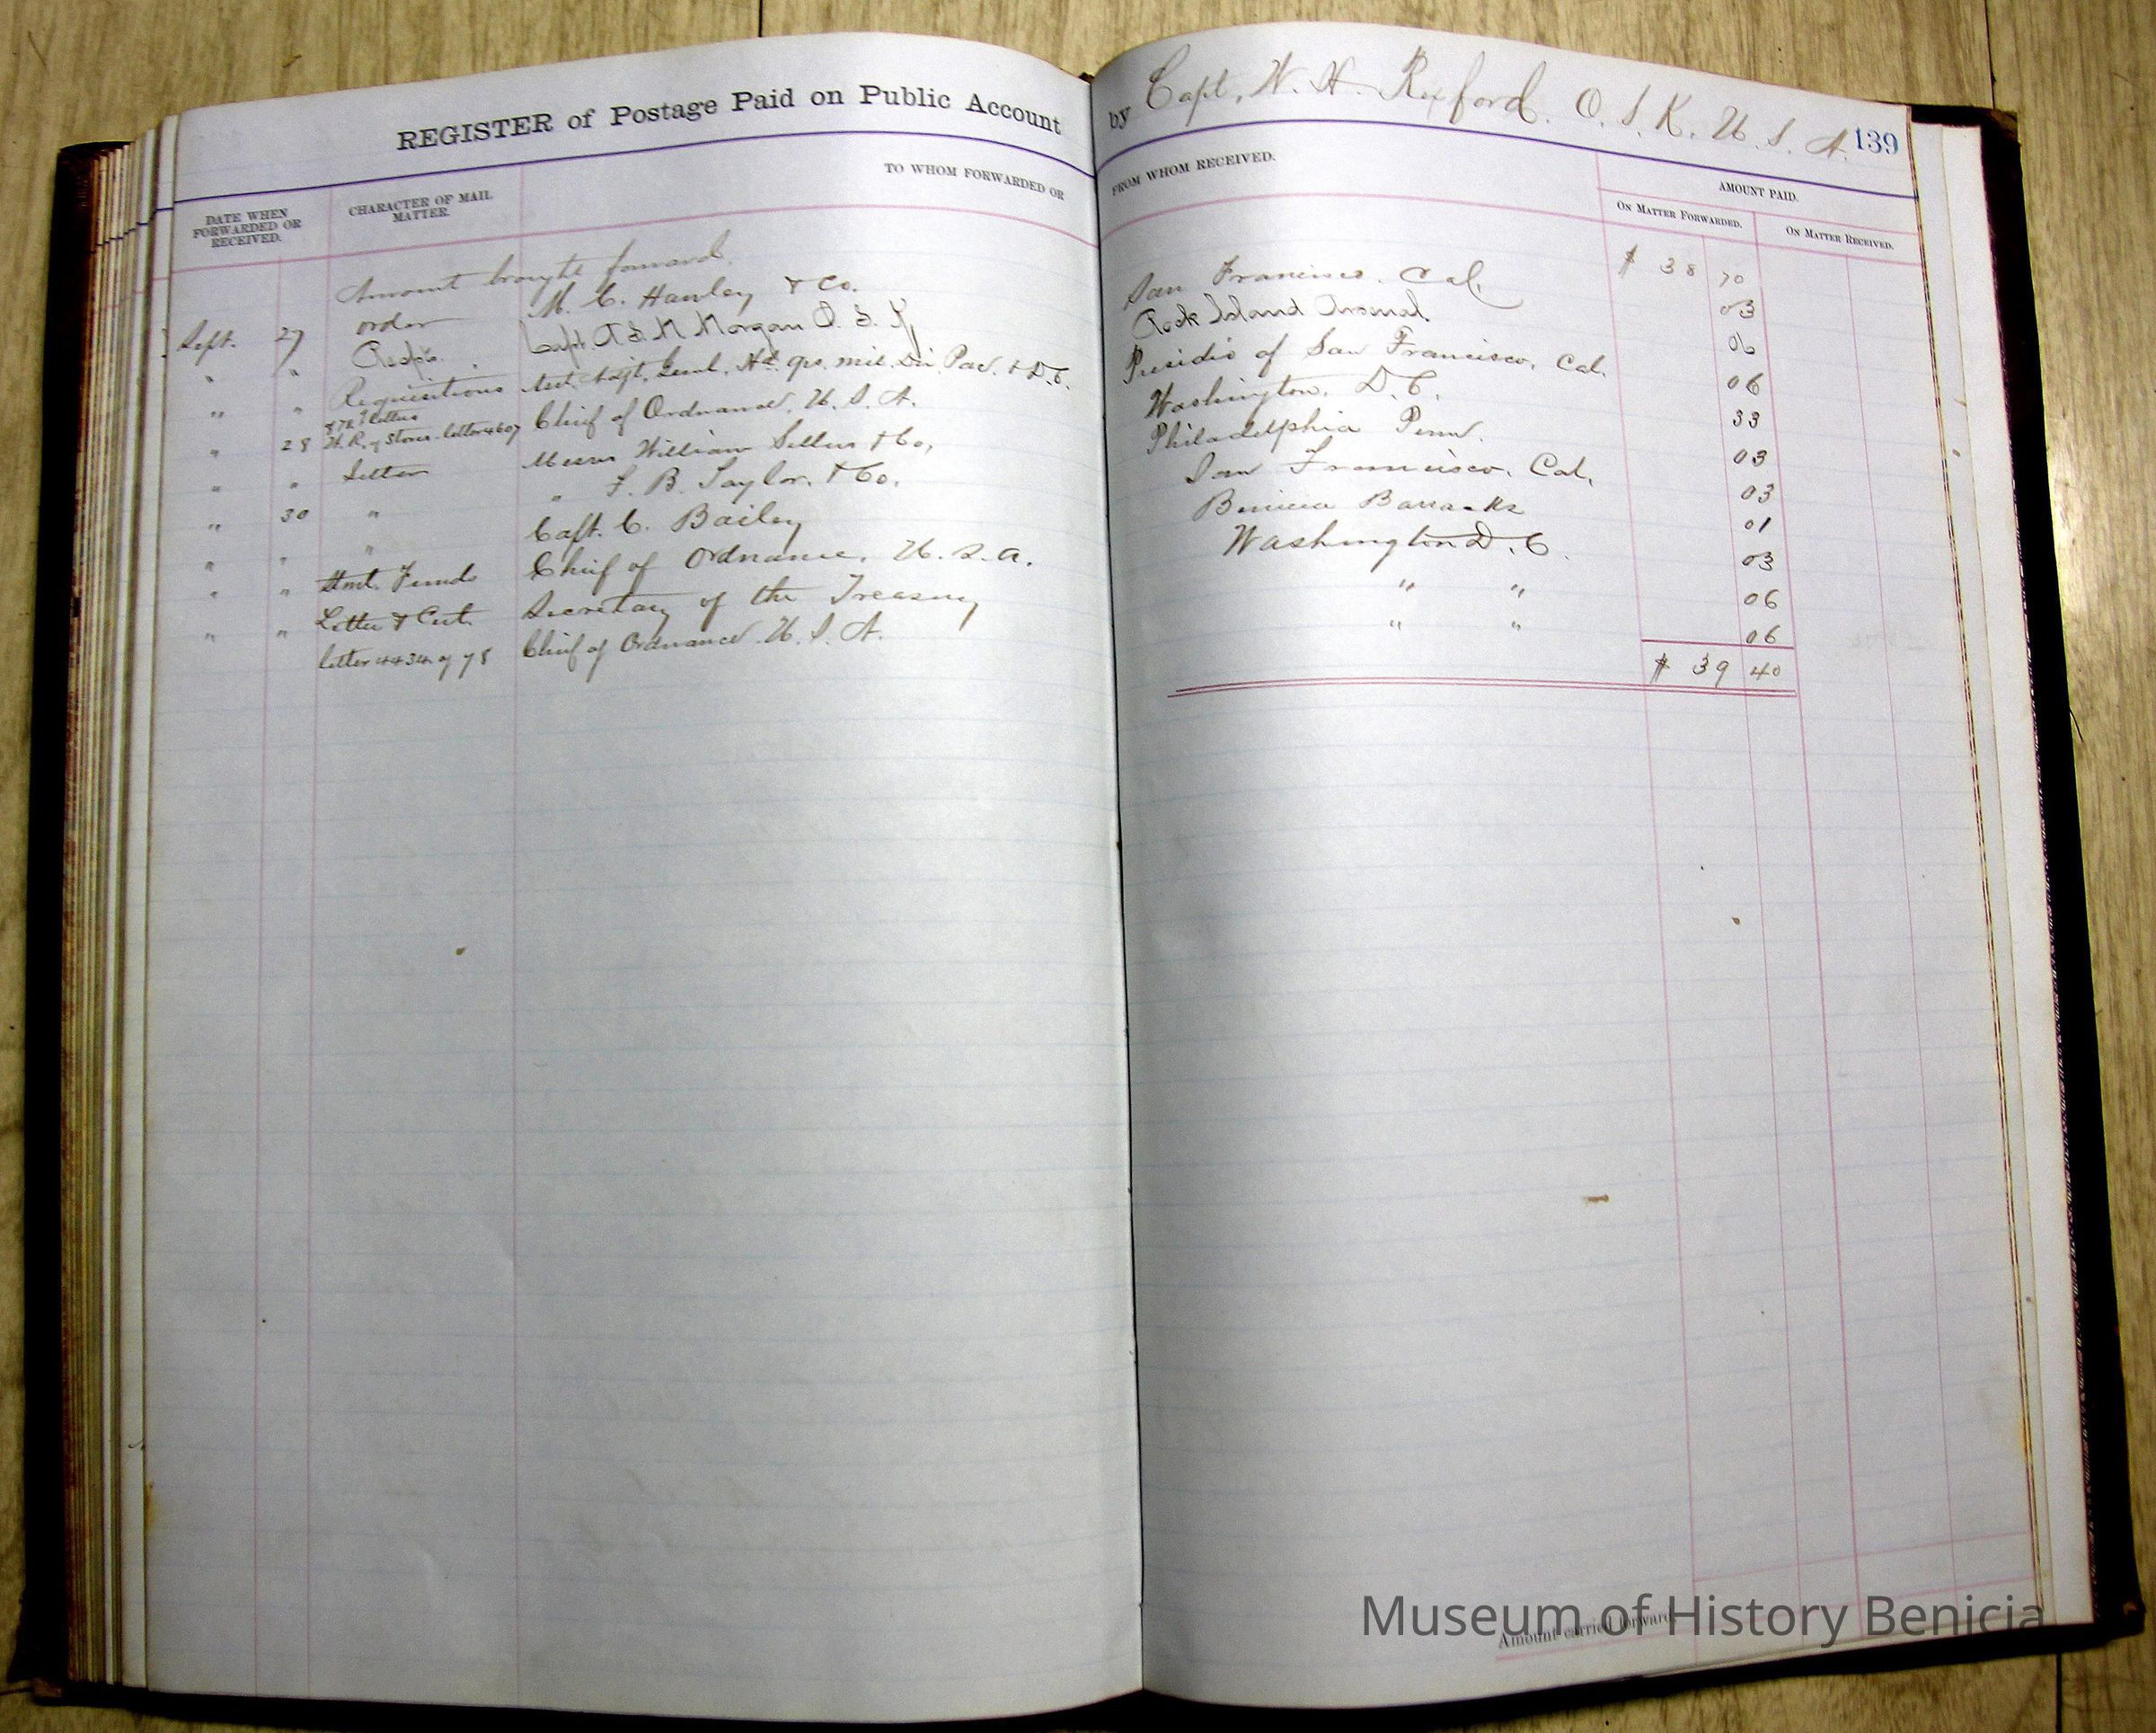 REGISTER of Postage Paid on Public Account by Capt. W. H. Rexford. O. S. K. U. S. A. 139
DATE WHEN FORWARDED OR RECEIVED.
CHARACTER OF MAIL MATTER.
TO WHOM FORWARDED OR FROM WHOM RECEIVED.
AMOUNT PAID.
ON MATTER FORWARDED.
ON MATTER RECEIVED.
Amount brought forward. $ 38 70
Sept. 27 order M. C. Hawley & Co. San Francisco. Cal. 03
" " Capt. A S. M Morgan O. S. K Rock Island Arsenal. 06
" " Requisitions Asst. Adjt. Genl. Hd. qrs. mil. Div. Pac. & D.C. Presidio of San Francisco, Cal. 06
" 28 letters W. R. of Stores. letter 4607 Chief of Ordnance, U. S. A. Washington, D. C. 33
" " Letter Messrs William Sellers & Co, Philadelphia Penn. 03
" 30 " " F. B. Taylor. & Co. San Francisco, Cal. 03
" " " Capt. C. Bailey Benicia Barracks 01
" " Stmt. Funds Chief of Ordnance. U. S. A. Washington D. C. 03
" " Letter & Cert. Secretary of the Treasury " " 06
letter 4434 of 78 Chief of Ordnance U. S. A. " " 06
$ 39 40
Amount carried forward
Museum of History Benicia